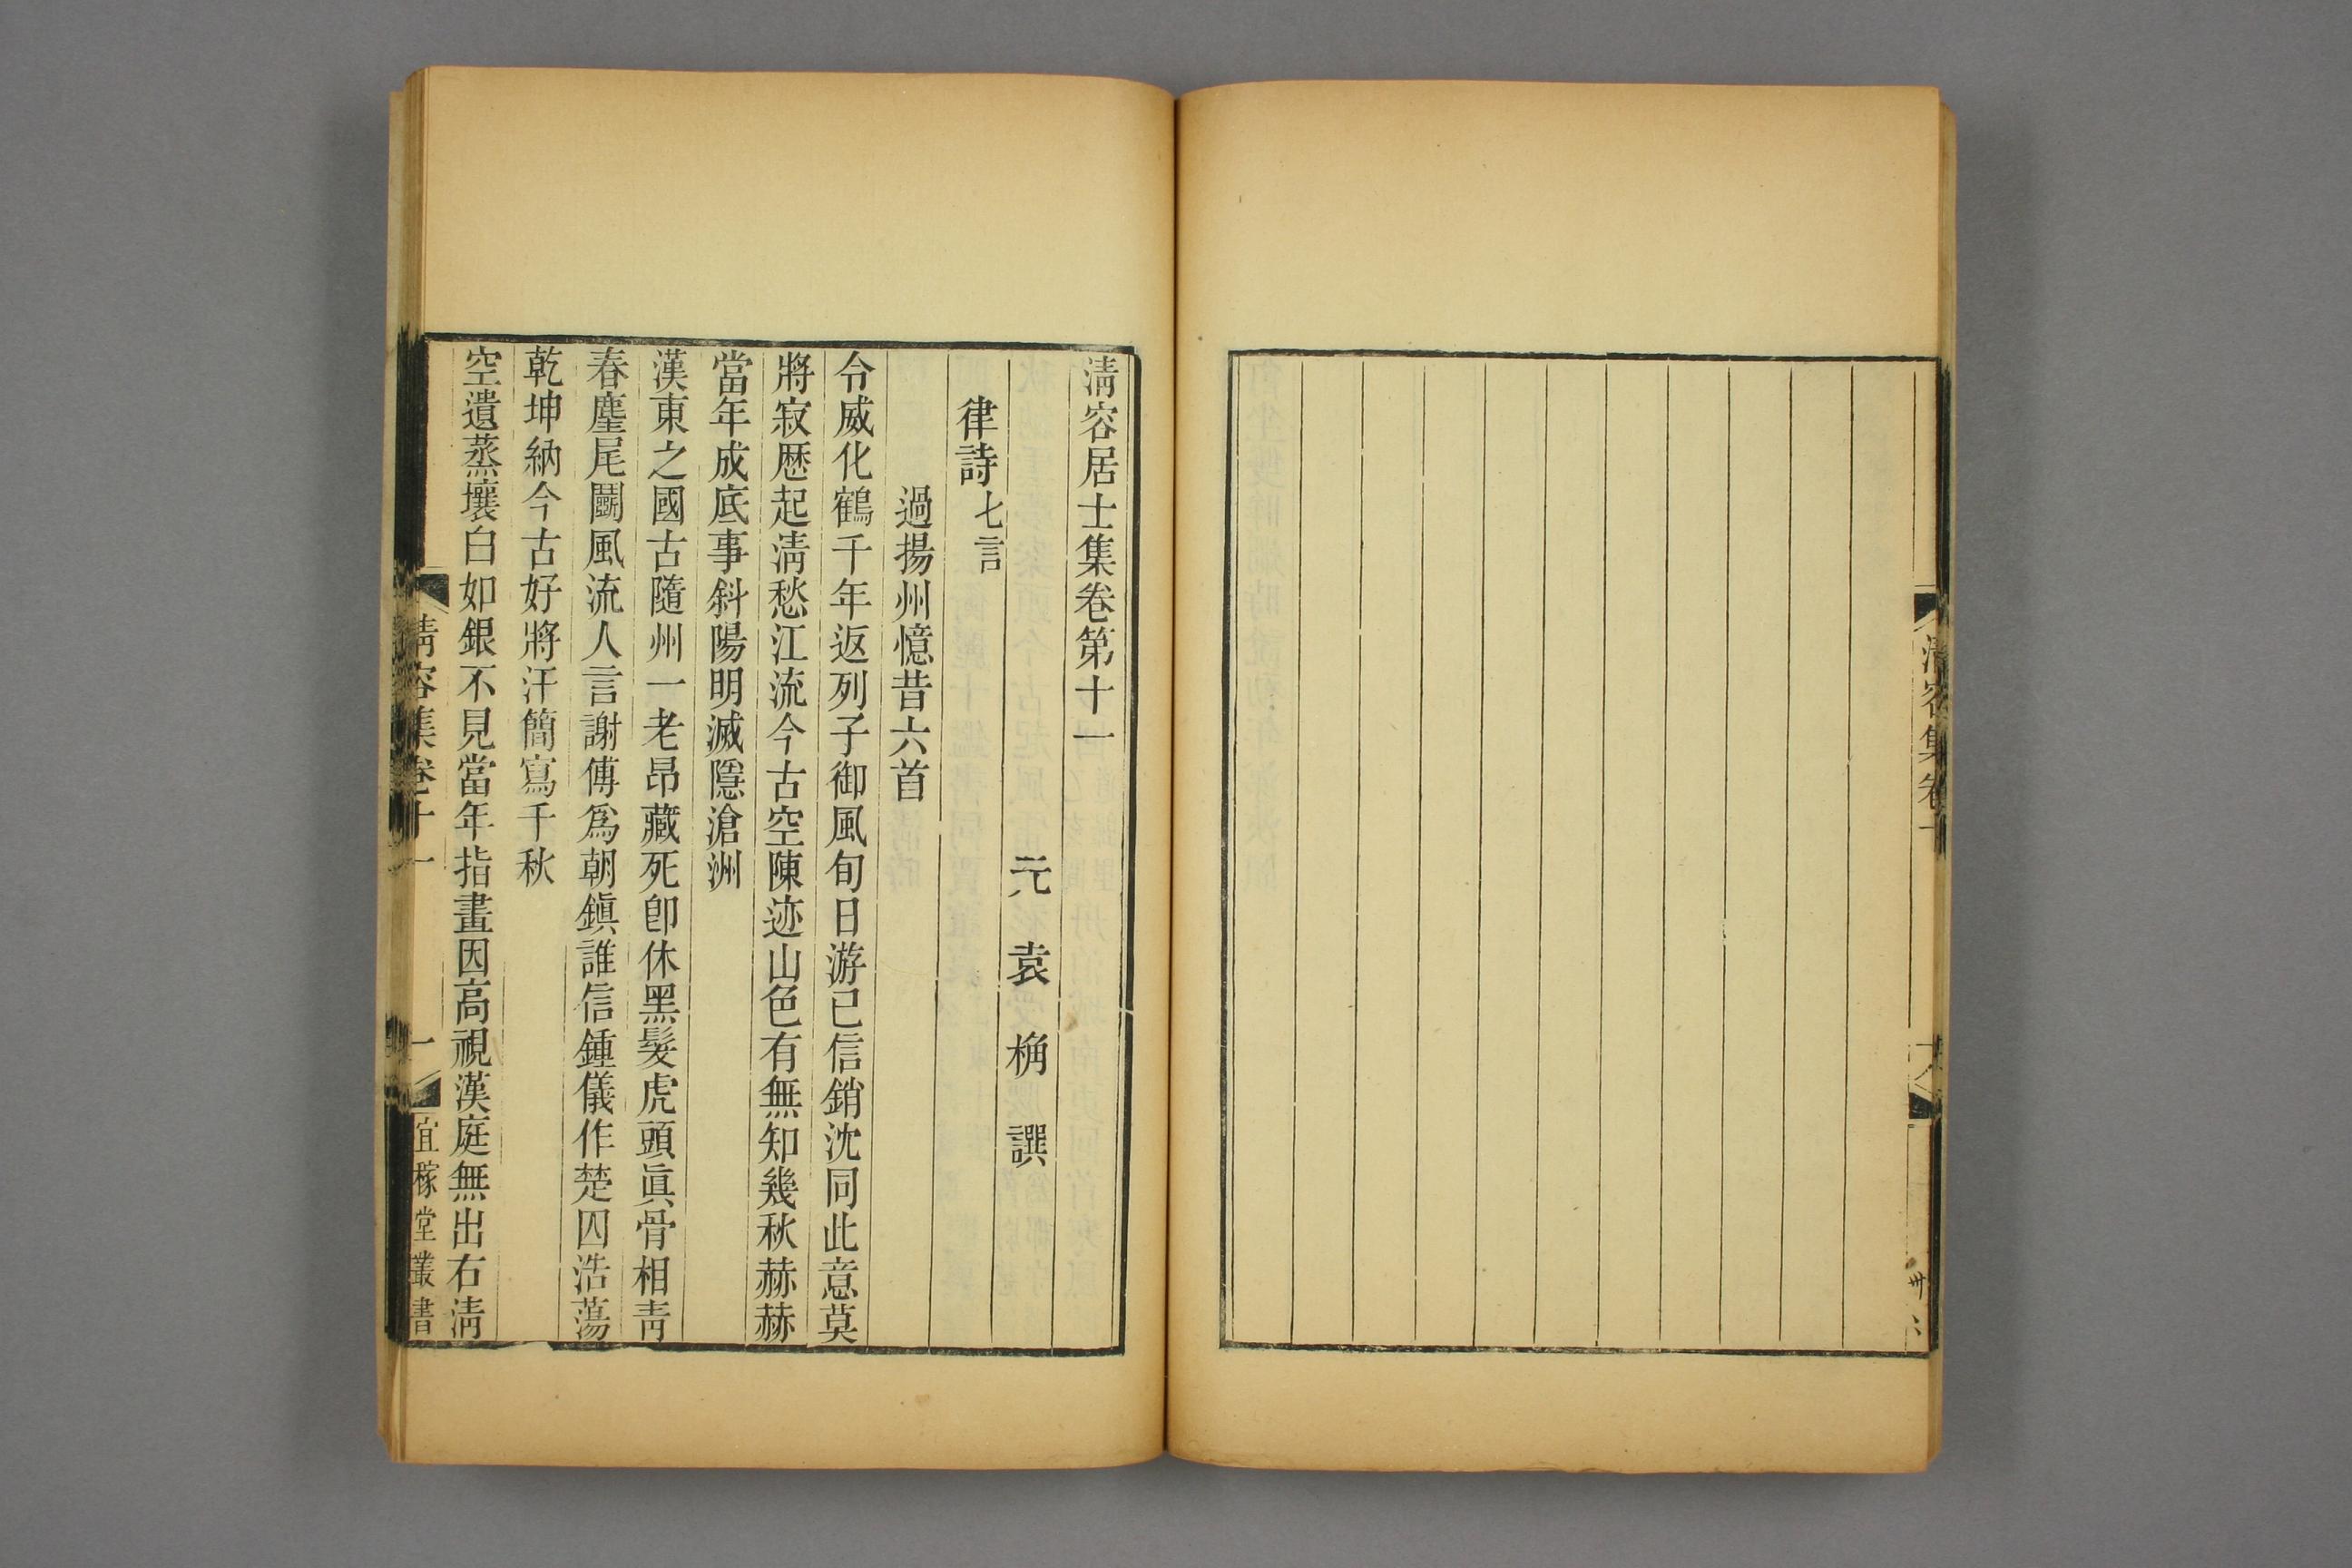 清容居士集卷第十一
元 袁 桷 譔
律詩七言
過揚州憶昔六首
令威化鶴千年返列子御風旬日游已信銷沈同此意莫
將寂歷起淸愁江流今古空陳迹山色有無知幾秋赫赫
當年成底事斜陽明滅隱滄洲
漢東之國古隨州一老昂藏死卽休黑髮虎頭眞骨相靑
春麈尾鬭風流人言謝傅爲朝鎭誰信鍾儀作楚囚浩蕩
乾坤納今古好將汗簡寫千秋
空遺蒸壤白如銀不見當年指畫因高視漢庭無出右淸
清容集卷十一
一
宜稼堂叢書
清容集卷十